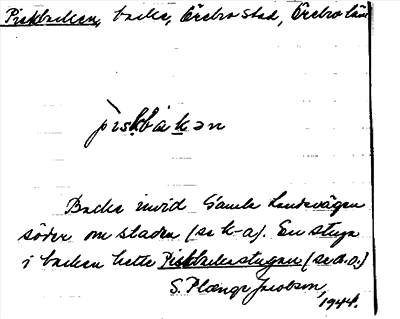 Piskbacken, backe, Örebro stad, Örebro län
piskbakən
Backe invid Gamla Landsvägen
söder om staden (se k-a). En stuga
i backen hette Piskbackastugan (se d.o.)
S. Plænge Jacobson,
1944.